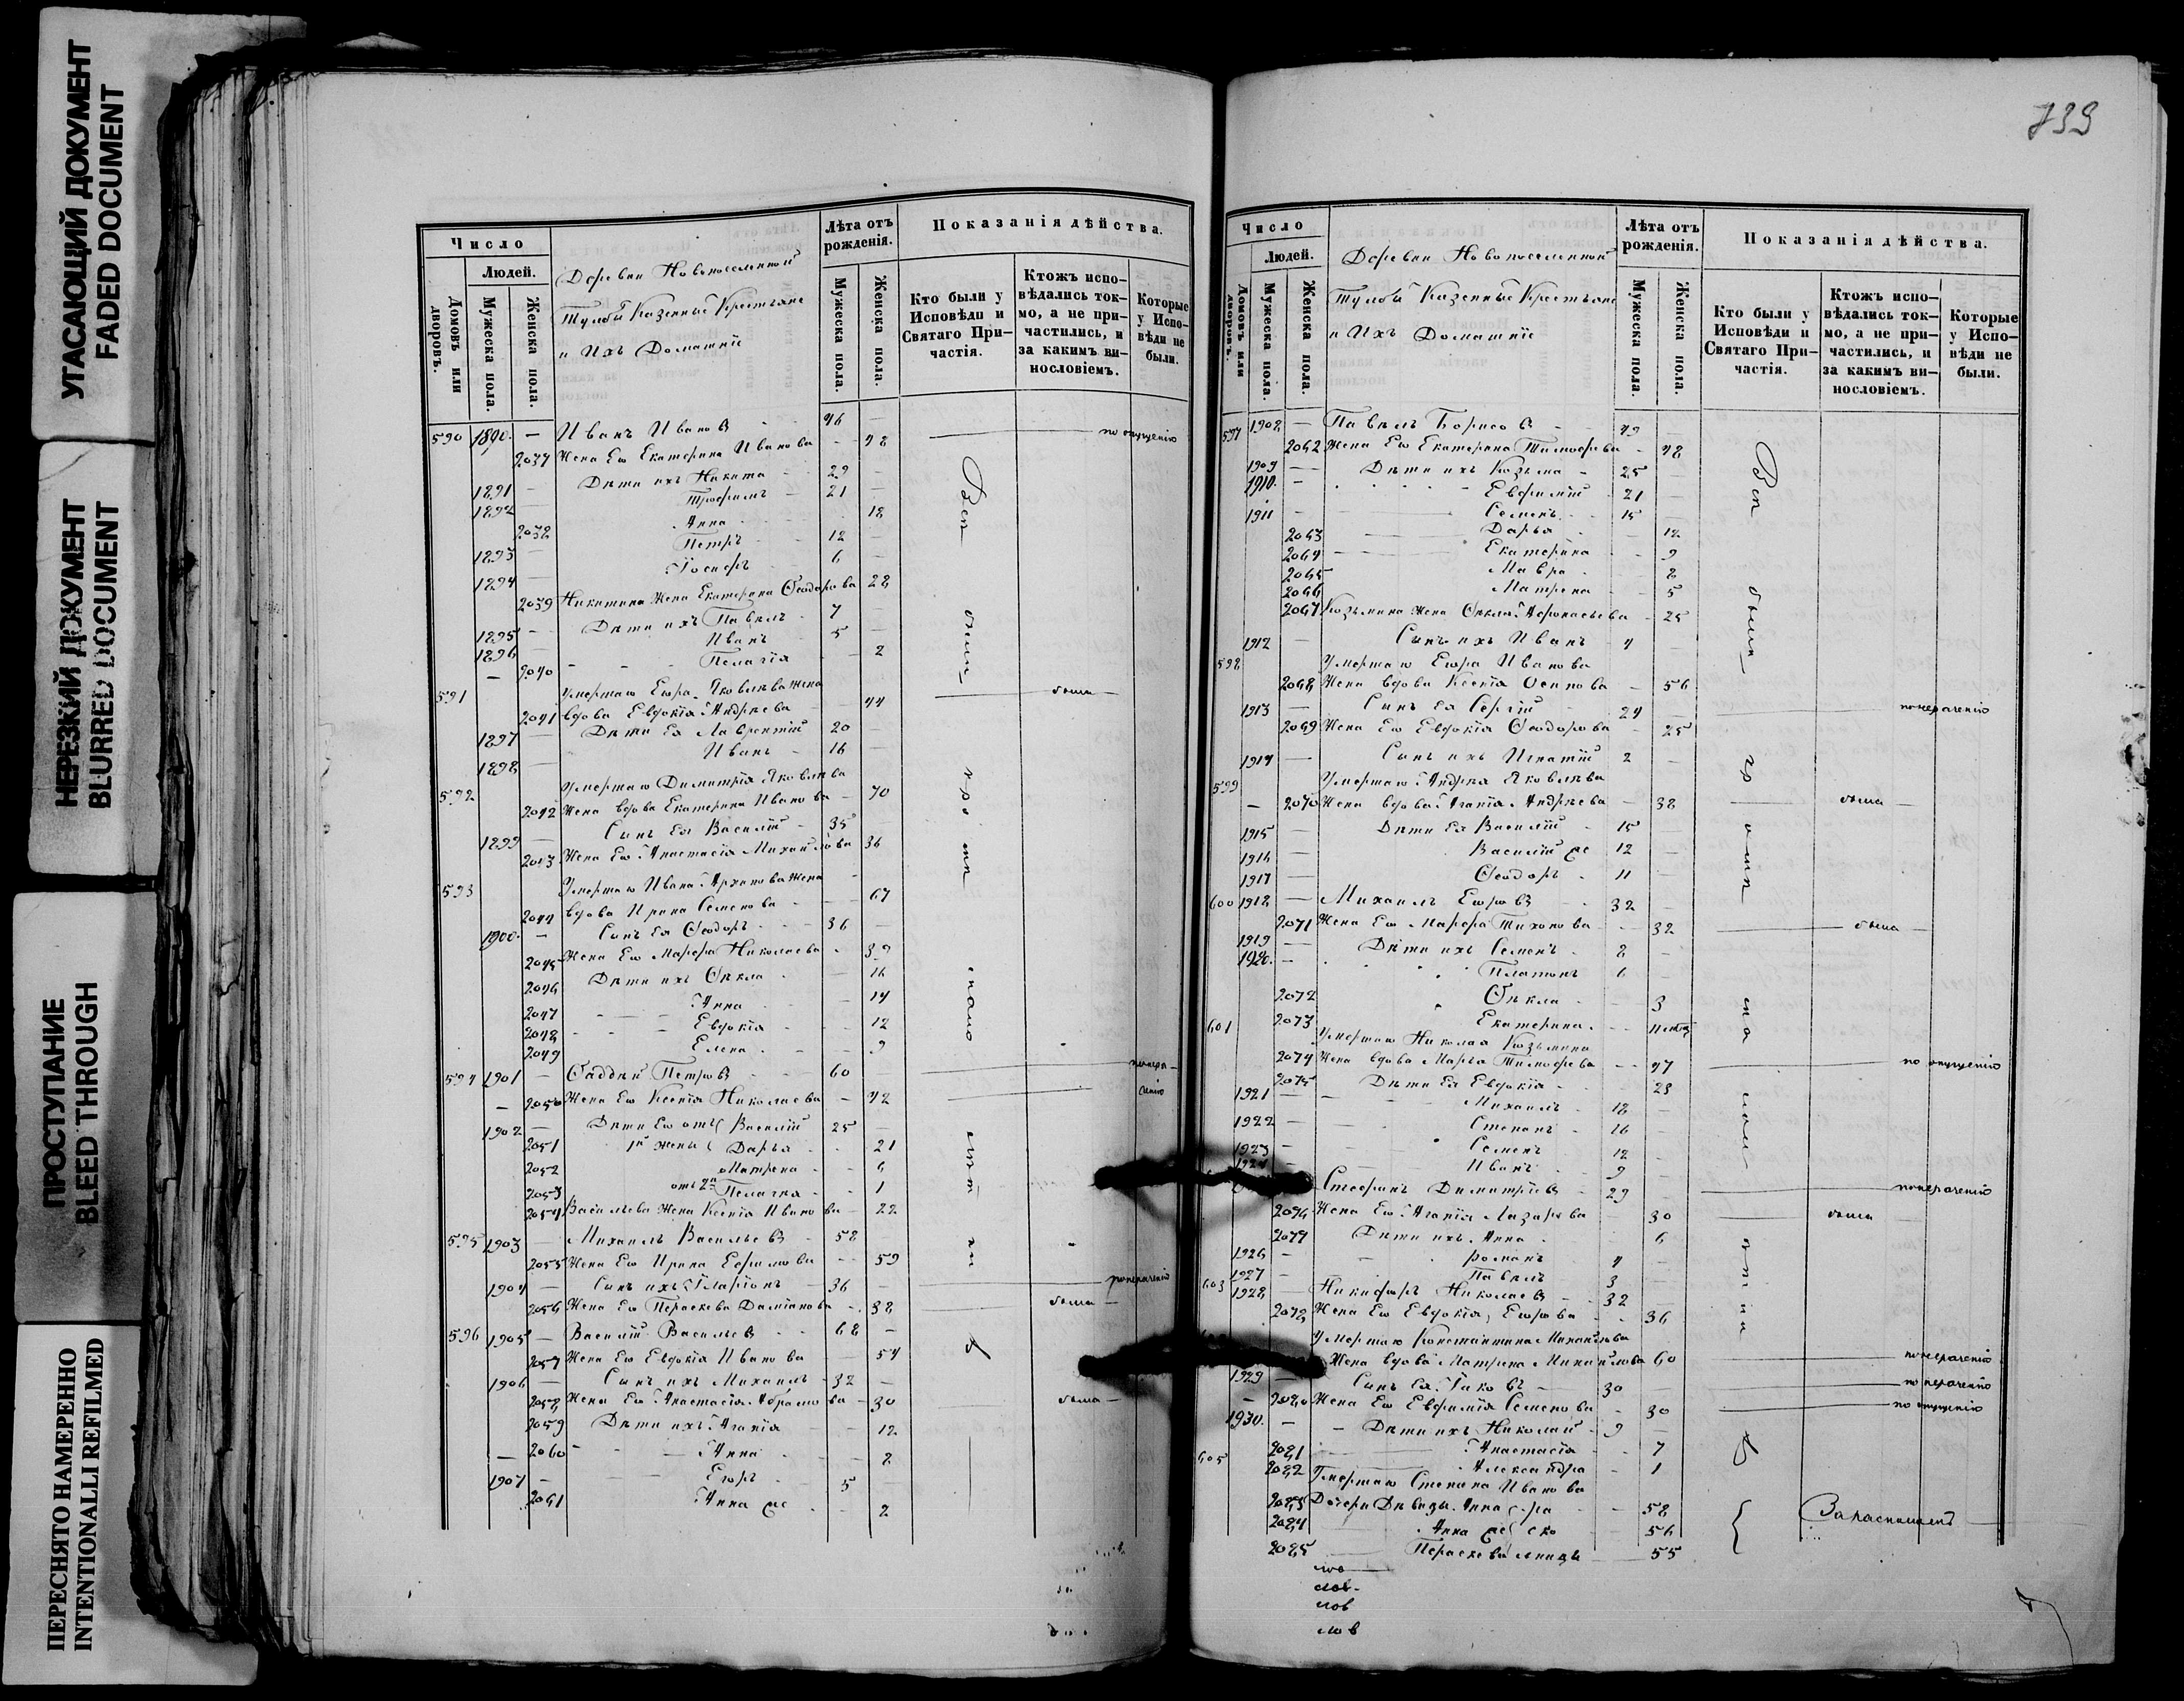 УГАСАЮЩИЙ ДОКУМЕНТ
FADED DOCUMENT
НЕРЕЗКИЙ ДОКУМЕНТ
BLURRED DOCUMENT
ПРОСТУПАНИЕ
BLEED THROUGH
ПЕРЕСНЯТО НАМЕРЕННО
INTENTIONALLI REFILMED
Число
Людей.
Домовъ или дворовъ.
Мужеска пола.
Женска пола.
Деревни Новопоселенной
Тулбы Казенные Крестьяне
и Ихъ Домашніе
Лѣта отъ рожденія.
Мужеска пола.
Женска пола.
Показанія дѣйства.
Кто были у Исповѣди и Святаго При-частія.
Ктожъ испо-вѣдались ток-мо, а не при-частились, и за какимъ ви-нословіемъ.
Которые у Испо-вѣди не были.
590 1890. — Иванъ Ивановъ 46 — по опущенію
2037 Жена Его Екатерина Иванова 48
1891 — Дѣти ихъ Никита 29
1892 — Трофимъ 21
2038 Анна 18
1893 — Петръ 12
1894 — Іосифъ 6
2039 Никитина Жена Екатерина Ѳеодорова 28
1895 — Дѣти ихъ Павелъ 7
1896 — Иванъ 5
2040 Пелагія 2
591 Умершаго Егора Яковлева жена
2041 вдова Евдокія Андреева 44 была
1897 — Дѣти Ея Лаврентій 20
1898 — Иванъ 16
592 Умершаго Димитрія Яковлева
2042 Жена вдова Екатерина Иванова 70
1899 — Сынъ Ея Василій 35
2043 Жена Его Анастасія Михайлова 36
593 Умершаго Ивана Архипова жена
2044 вдова Ирина Семенова 67
1900. — Сынъ Ея Ѳеодоръ 36
2045 Жена Его Марѳа Николаева 39
2046 Дѣти ихъ Ѳекла 16
2047 Анна 14
2048 Евдокія 12
2049 Елена 9
594 1901 — Ѳаддей Петровъ 60 — понера-
2050 Жена Его Ксенія Николаева 42 — ченію
1902 — Дѣти Его отъ Василій 25
2051 1й жены Дарья 21
2052 Матрена 6
2053 отъ 2й Пелагея 1
2054 Васильева Жена Ксенія Иванова 22
595 1903 — Михаилъ Васильевъ 58
2055 Жена Его Ирина Ефимова 59
1904 — Сынъ ихъ Иларіонъ 36 — понераченію
2056 Жена Его Параскева Даміанова 38 — была
596 1905 — Василій Васильевъ 68
2057 Жена Его Евдокія Иванова 54
1906 — Сынъ ихъ Михаилъ 32
2058 Жена Его Анастасія Абрамова 30 была
2059 Дѣти ихъ Агапія 12
2060 Анна 8
1907 — Егоръ 5
2061 Анна 2
Вси
были
739
Число
Людей.
Домовъ или дворовъ.
Мужеска пола.
Женска пола.
Деревни Новопоселенной
Тулбы Казенные Крестьяне
и Ихъ Домашніе
Лѣта отъ рожденія.
Мужеска пола.
Женска пола.
Показанія дѣйства.
Кто были у Исповѣди и Святаго При-частія.
Ктожъ испо-вѣдались ток-мо, а не при-частились, и за какимъ ви-нословіемъ.
Которые у Испо-вѣди не были.
597 1908 — Павелъ Борисовъ 49
2062 Жена Его Екатерина Тимофеева 48
1909 — Дѣти ихъ Козьма 25
1910. — Евфимій 21
1911 — Семенъ 15
2063 Дарья 12
2064 Екатерина 9
2065 Мавра 8
2066 Матрена 5
2067 Козьмина жена Ѳекла Афонасьева 25
1912 — Сынъ ихъ Иванъ 4
598 Умершаго Егора Иванова
2068 Жена вдова Ксенія Осипова 56
1913 — Сынъ Ея Сергій 24 — понераченію
2069 Жена Его Евдокія Ѳеодорова 25
1914 — Сынъ ихъ Игнатій 2
599 Умершаго Андрея Яковлева
— 2070 Жена вдова Агапія Андреева 38 — была
1915 — Дѣти Ея Василій 15
1916 — Василій 12
1917 — Ѳеодоръ 11
600 1918 — Михаилъ Егоровъ 32
2071 Жена Его Марѳа Тихонова 32 — была
1919 — Дѣти ихъ Семенъ 8
1920. — Платонъ 6
2072 Ѳекла 3
2073 Екатерина
601 Умершаго Николая Козьмина
2074 Жена вдова Марья Тимофеева 47 — по опущенію
2075 Дѣти Ея Евдокія 23
1921 — Михаилъ 18
1922 — Степанъ 16
1923 — Семенъ 12
1924 — Иванъ 9
Стефанъ Димитріевъ 29 — понераченію
2076 Жена Его Агапія Лазарева 30 — была
2077 Дѣти ихъ Анна 6
1926 — Романъ 4
1927 — Павелъ 3
603 1928 — Никифоръ Николаевъ 32
2078 Жена Его Евдокія Егорова 36
Умершаго Константина Михайлова
Жена вдова Матрена Михайлова 60 — понераченію
1929 — Сынъ Ея Іаковъ 30 — понераченію
— 2080 Жена Его Евфимія Семенова 30 — по опущенію
1930. — Дѣти ихъ Николай 9
2081 Анастасія 7
605 2082 Александра 1
Умершаго Степана Иванова
2083 Дочери Дѣвицы Анна ра 58
2084 Анна ско 56
2085 Параскева льницы 55
Вси
были